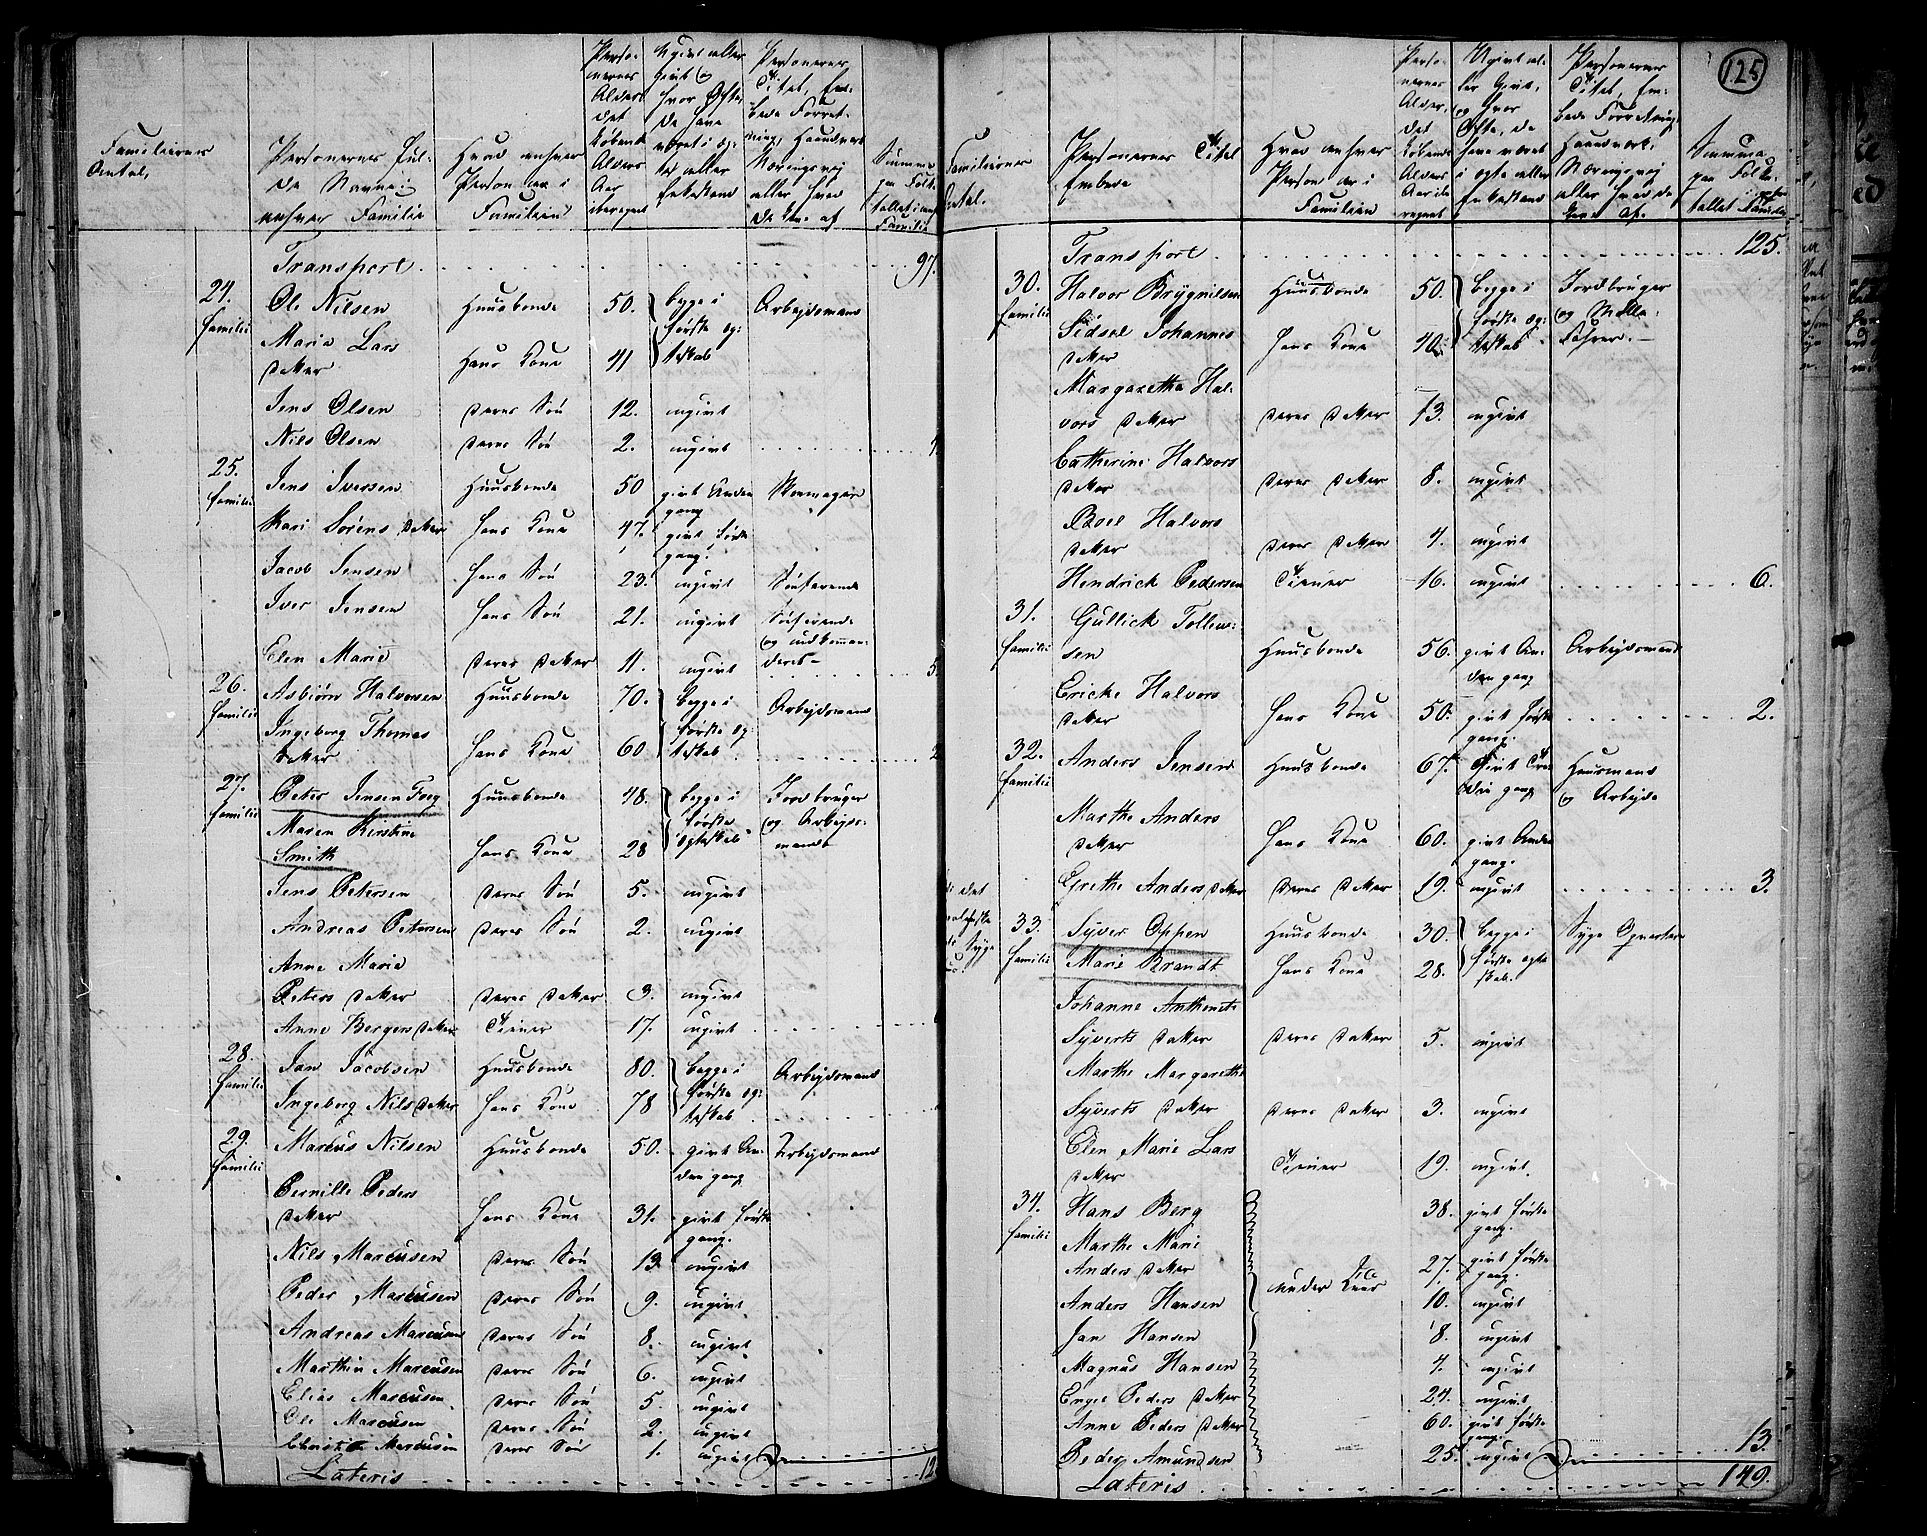 125
Familiernes Antal,
Personernes fulde Navne i enhver Familie
Hvad enhver Person er i Familien
Personernes Alder det løbende Alders Aar iberegnet
Ugivt eller Givt og hvor Ofte de have været i egte eller Enkestand
Personernes Titel, Embede Forretning, Haandverk Næringsvej eller hvad de leve af
Summa paa Folketallet i enhver Familie
Transport 97.
24. Familie
Ole Nilsen Huusbonde 50. begge i første egteskab Arbejdsmand
Marie Lars Daatter Hans Kone 41
Jens Olsen Deres Søn 12. ugivt
Nils Olsen Deres Søn 2. ugivt
25. Familie
Jens Iversen Huusbonde 50 givt Anden gang Skomager
Kari Sørens Datter Hans Kone 47. givt første gang.
Jacob Jensen Hans Søn 23. ugivt Søefarende
Iver Jensen Hans Søn 21. ugivt Søefarende og udkommanderet
Elen Marie Deres Datter 11. ugivt 5.
26. Familie
Asbiørn Halvorsen Huusbonde 70. begge i første egteskab Arbejdsmand
Ingeborg Thomas Datter Hans Kone 60. 2
27. Familie
Peter Jensen Foeg Huusbonde 48. begge i første egteskab Jordbruger og Arbejdsmand
Maren Kirstine Smith Hans Kone 28
Jens Petersen Deres Søn 5. ugivt
Andreas Petersen Deres Søn 2. ugivt
Anne Marie
Peters Datter Deres Datter 3. ugivt
Anne Bergers Datter Tiener 17. ugivt
28. Familie
Jan Jacobsen Huusbonde 80. begge i første egteskab Arbejdsmand
Ingeborg Nils Datter Hans Kone 78
29. Familie
Marcus Nilsen Huusbonde 50. givt Anden gang Arbejdsmand
Pernille Peders Datter Hans Kone 31. givt første gang.
Nils Marcusen Deres Søn 13 ugivt
Peder Marcusen Deres Søn 9. ugivt
Andreas Marcusen Deres Søn 8. ugivt
Marthin Marcusen Deres Søn 6. ugivt
Elias Marcusen Deres Søn 5. ugivt
Ole Marcusen Deres Søn 2. ugivt
Marcusen Deres Søn 1. ugivt
Lateris 12
Familiernes Antal.
Personernes Titel Embede
Hvad enhver Person er i Familien
Personernes Alder, det løbende Alders Aar iberegnet
Ugivt eller Givt, og hvor Ofte, de have været i egte eller Enkestand
Personernes Titel, Embede Forretning, Haandverk, Næringsvej eller hvad de leve af.
Summa paa Folketallet i hver Familie
Transport 125.
30. Familie
Halvor Brÿgnilsen Huusbonde 50. begge i første egteskab Jordbruger og
Sidsel Johannes Datter Hans Kone 40.
Margaretha Halvors Datter Deres Datter 13. ugivt
Catherine Halvors Datter Deres Datter 8. ugivt
Boel Halvors Datter Deres Datter 4. ugivt
Hendrick Pedersen Tiener 16. ugivt 6.
31. Familie
Gullick Tollevsen Huusbonde 56. givt Anden gang Arbejdsmand
Ericke Halvors Datter Hans Kone 50. givt første gang. 2.
32. Familie
Anders Jensen Huusbonde 67. Givt Tredie gang Huusmand og Arbejde
Marthe Anders Datter Hans Kone 60. givt Anden gang.
Grethe Anders Datter Deres Datter 19. ugivt 3.
33. Familie
Syver Oppen Huusbonde 30. begge i første egteskab.
Marie Brandt Hans Kone 28.
Johanne Anthenete
Syverts Datter Deres Datter 5. ugivt
Marthe Margarethe
Syverts Datter Deres Datter 3. ugivt
Elen Marie Lars Datter Tiener 19. ugivt.
34. Familie
Hans Berg 38. givt første gang.
Marthe Marie
Anders Datter under Kuur 27. givt første gang.
Anders Hansen 10. ugivt
Jan Hansen 8. ugivt
Magnus Hansen 4. ugivt
Engel Peders Datter 24. ugivt
Anne Peders Datter 60. givt første gang.
Peder Amundsen 25. ugivt 13.
Lateris 149.